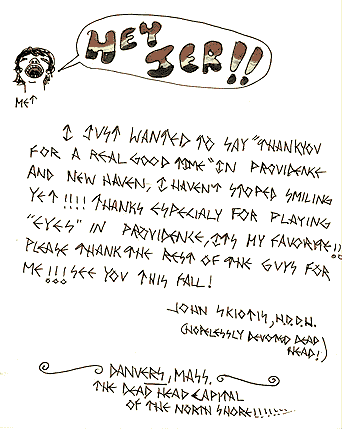 HEY
JER!!
ME↑
I JUST WANTED TO SAY "THANKYOU
FOR A REAL GOOD TIME" IN PROVIDENCE
AND NEW HAVEN, I HAVEN'T STOPED SMILING
YET!!!! THANKS ESPECIALY FOR PLAYING
"EYES" IN PROVIDENCE, ITS MY FAVORITE!!
PLEASE THANK THE REST OF THE GUYS FOR
ME!!! SEE YOU THIS FALL!
JOHN SKIOTIS, H.D.D.H.
(HOPELESSLY DEVOTED DEAD
HEAD!)
DANVERS, MASS.
THE DEAD HEAD CAPITAL
OF THE NORTH SHORE!!!!!!!